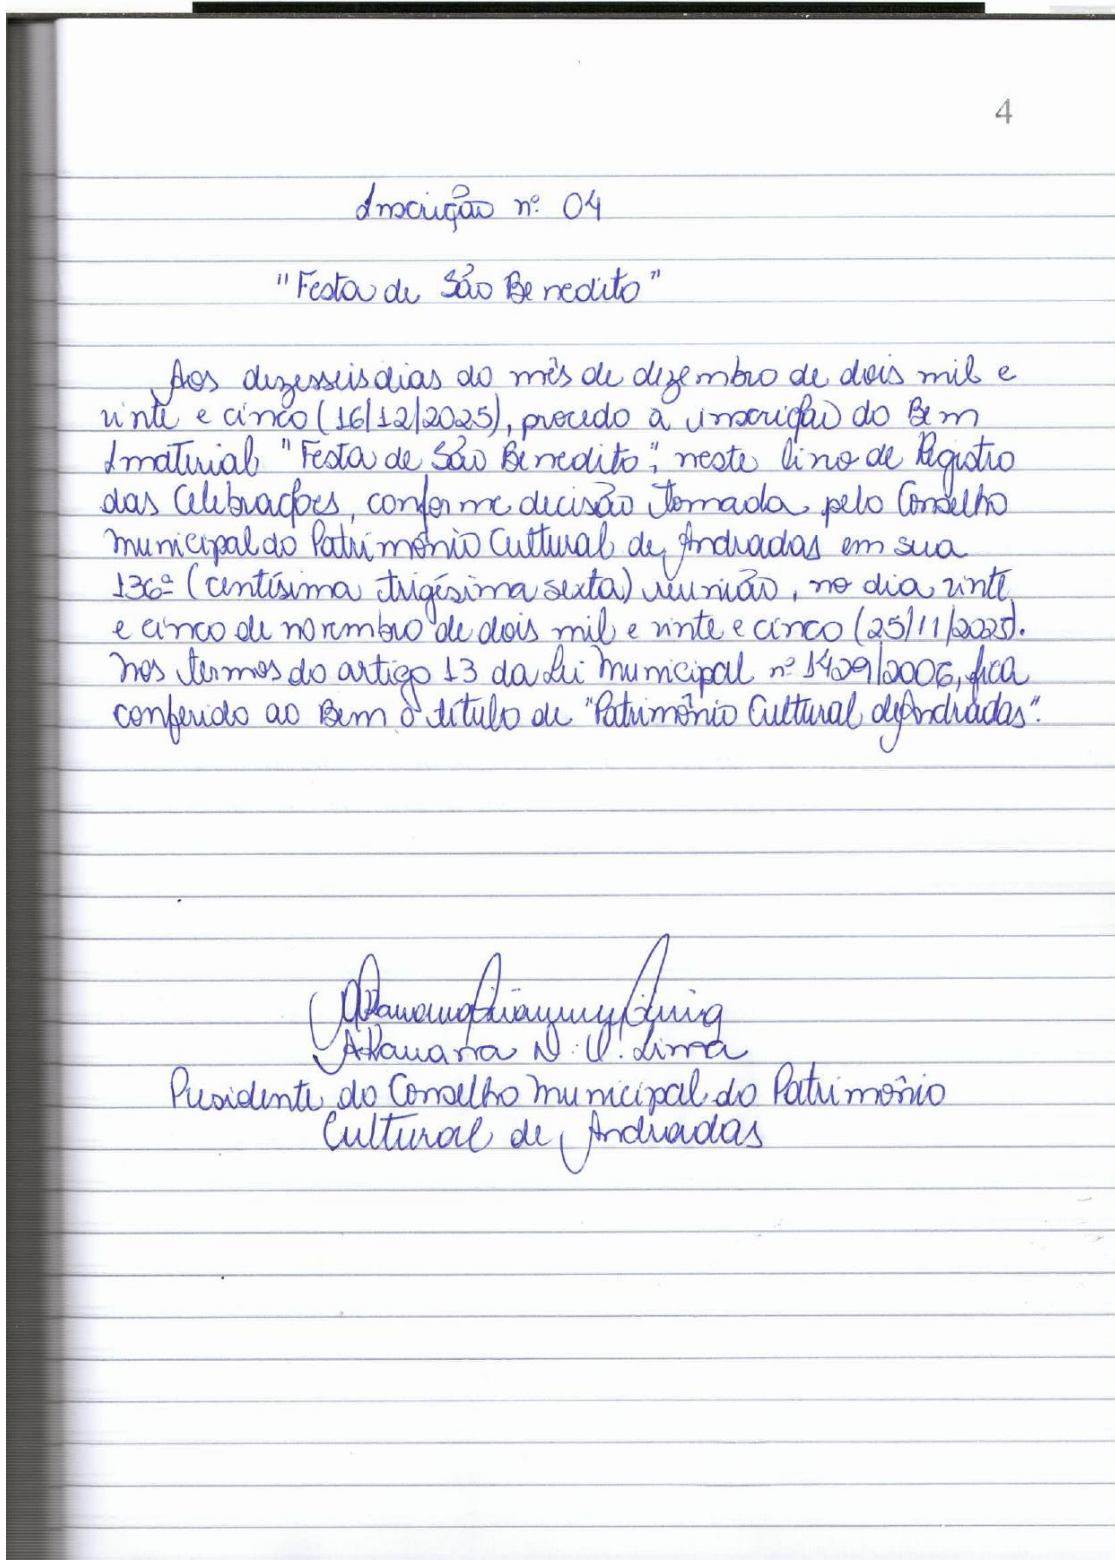 4
Inscrição nº 04
"Festa de São Benedito"
Aos dezesseis dias do mês de dezembro de dois mil e
vinte e cinco (16/12/2025), procedo à inscrição do Bem
Imaterial "Festa de São Benedito", neste livro de Registro
das Celebrações, conforme decisão tomada pelo Conselho
Municipal do Patrimônio Cultural de Andradas em sua
136ª (centísima trigésima sexta) reunião, no dia vinte
e cinco de novembro de dois mil e vinte e cinco (25/11/2025).
Nos termos do artigo 13 da Lei Municipal nº 1409/2006, fica
conferido ao Bem o título de "Patrimônio Cultural de Andradas".
N. V. Lima
Presidente do Conselho Municipal do Patrimônio
Cultural de Andradas